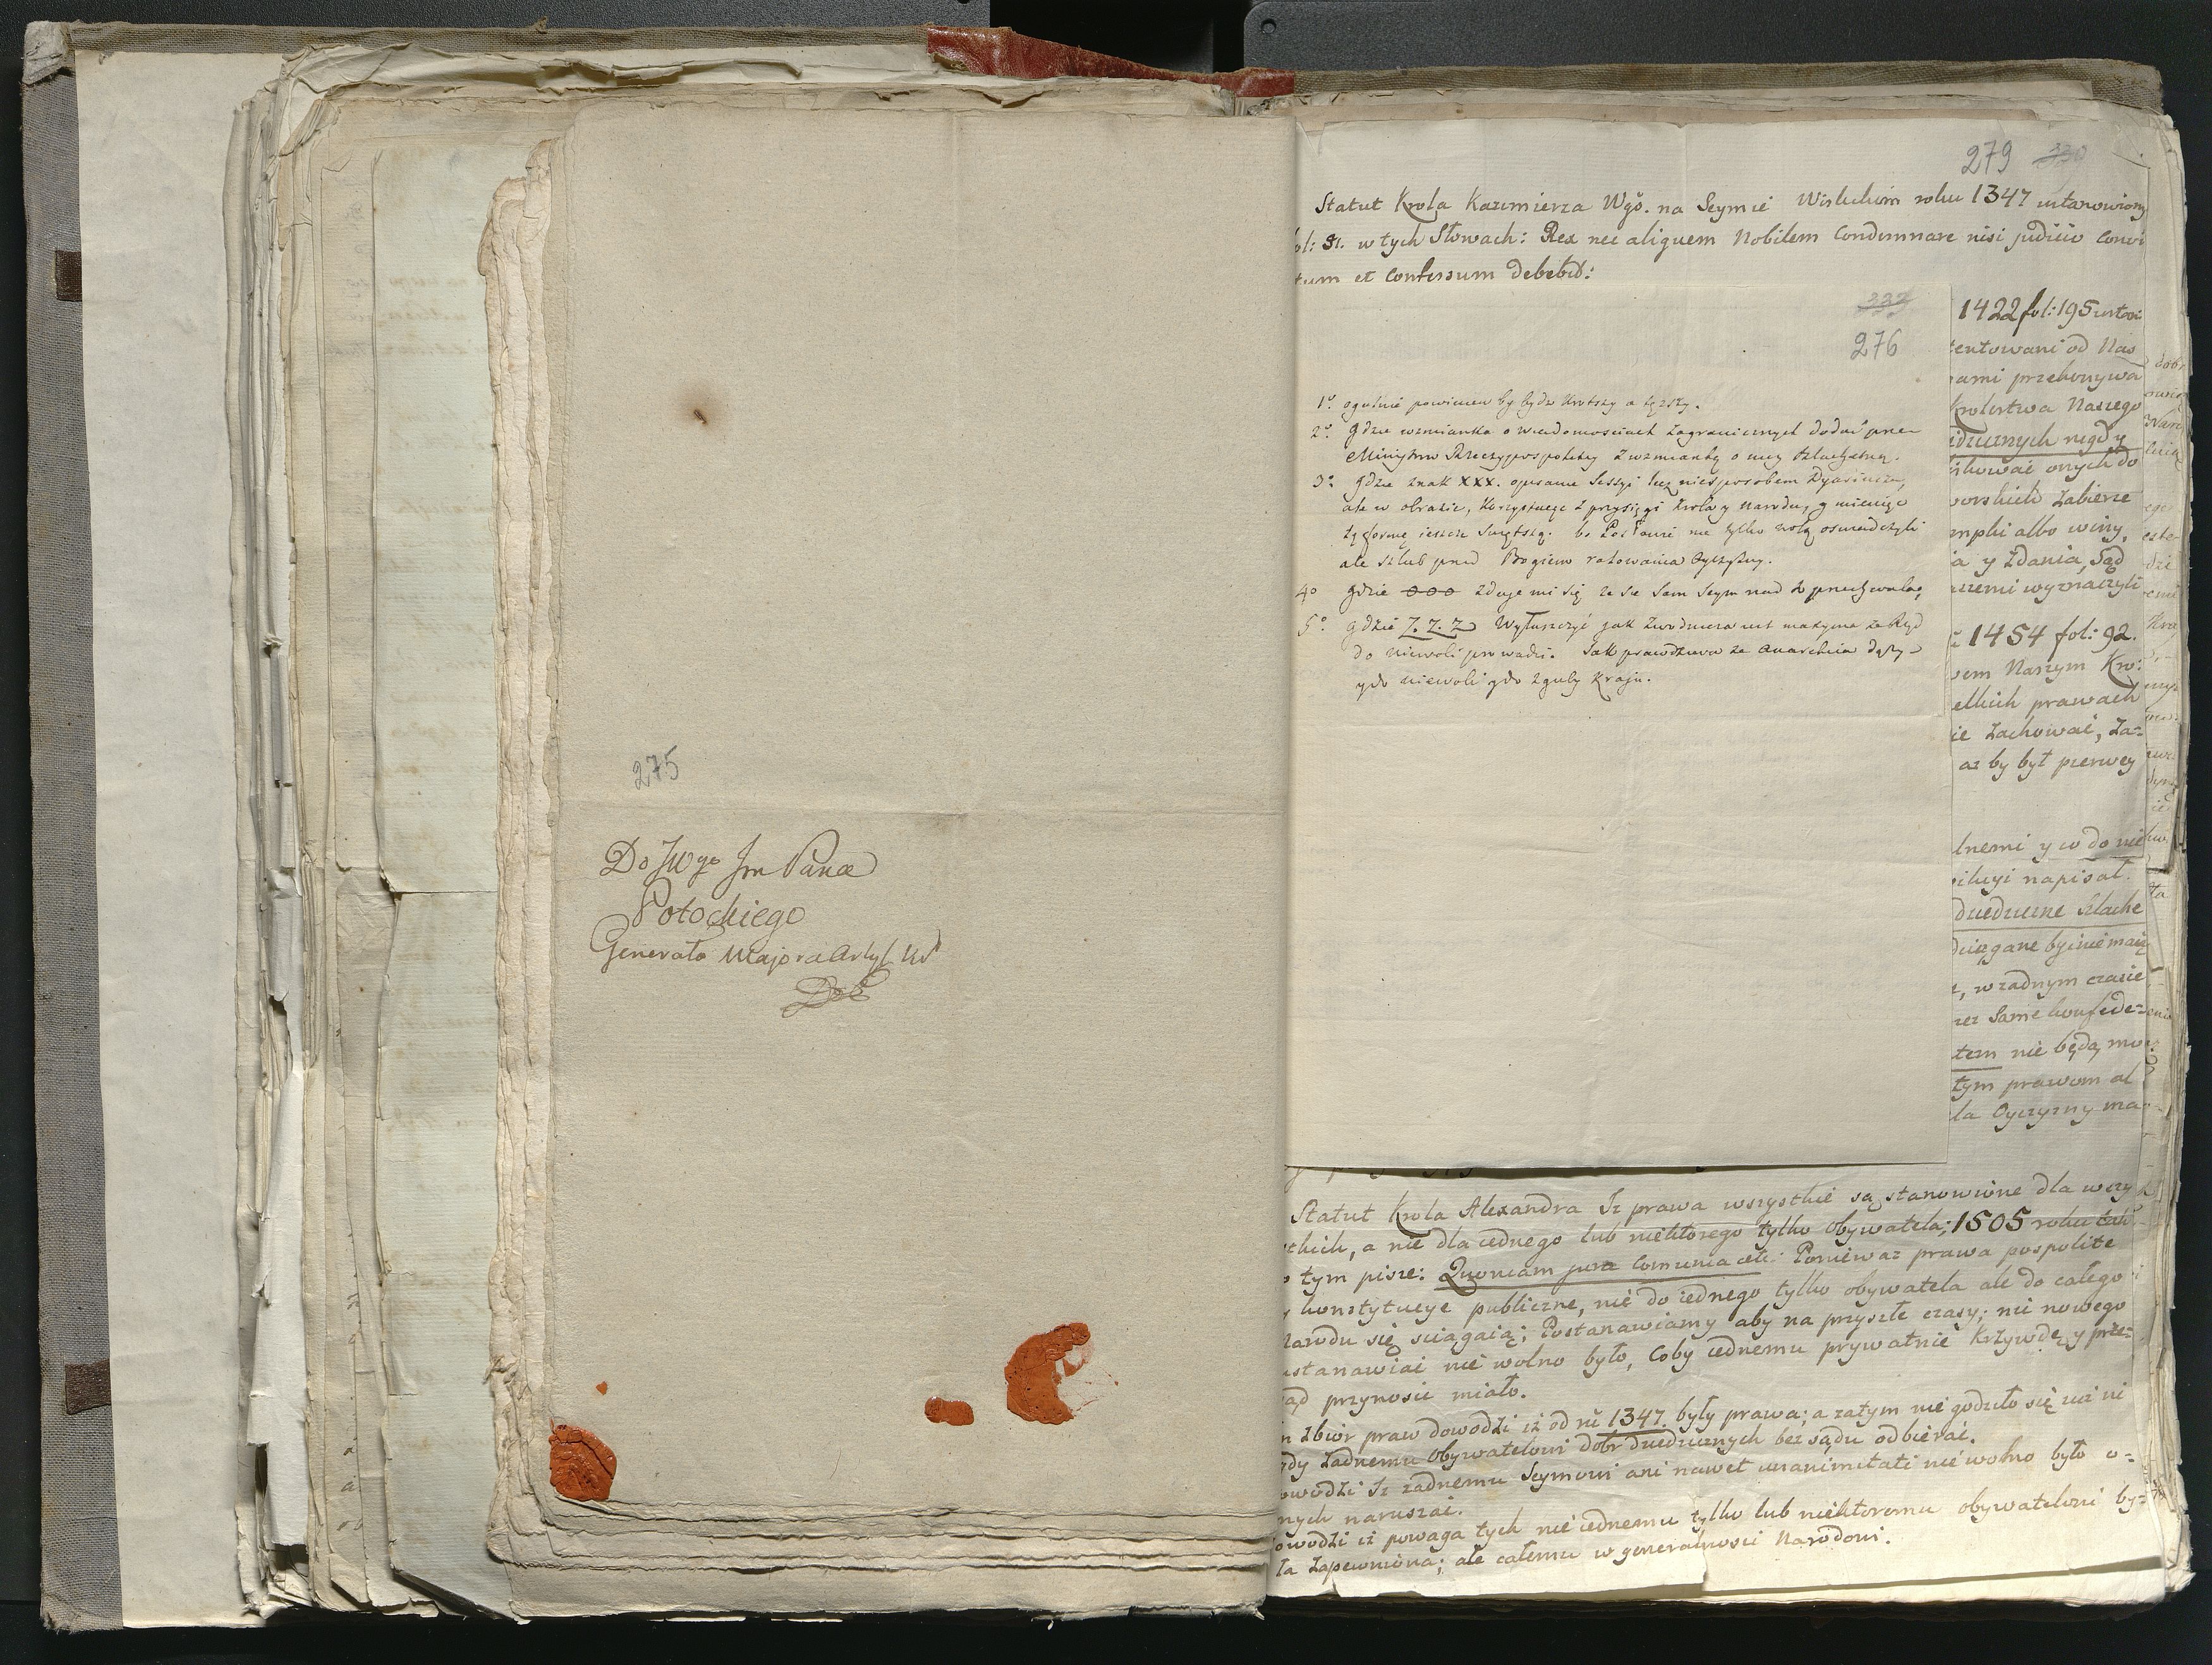 275
Do JWgo Jm Pana
Potockiego
Generała Majora Artyl
279 330
Statut Krola Kazimierza Wgő. na Seymie Wislickim roku 1347 ustanowiony
ol: 81. w tych Słowach: Rex nec aliquem Nobilem Condemnare nisi judicio Convi
tum et Confessum debebit:
332
276
1º. ogulnie powinien by bydz krotszy a tęzszy.
2º. gdzie wzmianka o wiadomosciach zagranicznych dodać prze
Ministrow Rzeczypospolitey z wzmianką o nich szlachetną.
3º gdzie znak XXX. opisanie Sessyi lecz nie sposobem Dyariusza,
ale w obrazie, korzystaiąc z przysięgi Krola y Narodu, y mieniąc
tę formę ieszcze swiętszą. bo Polacy nie tylko wolą oswiadczyli
ale szlub przed Bogiem ratowania Oyczyzny.
4º gdzie ooo zdaje mi się ze sie Sam Seym nad to przechwala,
5º. gdzie Z. Z. Z Wyłuszczyć jak zwodnicza iest maxyma ze Rząd
do niewoli prowadzi. Jak prawdziwa ze anarchia dązy
y do niewoli y do zguby Kraju.
1422 fol: 195 ustan
tentowani od Nas
ami przekonywa
Krolestwa Naszego
dzicznych nigdy
skować onych do
worskich zabierze
mphi albo winy,
a y Zdania, Sąd
szemi wyznaczyli
1454 fol: 92.
wem Naszym Kro:
elkich prawach
ie zachować, Za=
az by był pierwey
lnemi y w do nie
ilegi napisał.
dziedziczne Szlache
dciągane byi nie maią
, w zadnym czasie
zez Same konfede=
tem nie będą mo
tym prawom al
la Oyczyzny ma
Statut Krola Alexandra Iz prawa wszystkie są stanowione dla wszy
stkich, a nie dla iednego lub niektorego tylko Obywatela; 1505 roku tak
o tym pisze: Quoniam jura Comunia etc: Ponieważ prawa pospolite
y konstytucye publiczne, nie do iednego tylko obywatela ale do całego
Narodu się sciągaią; Postanawiamy aby na przyszłe czasy; nic nowego
ustanawiai nie wolno było, coby iednemu prywatnie krzywdę y prze=
ąd przynosić miało.
n zbior praw dowodzi iż od rŭ 1347. były prawa; a zatym nie godziło się nic ni
gdy żadnemu Obywatelowi dobr dziedzicznych bez sądu odbierai.
owodzi Iz zadnemu Seymowi ani nawet unanimitati nie wolno było o=
nych naruszai.
owodzi iż powaga tych nie iednemu tylko lub niektoremu obywatelowi by=
ła zapewniona; ale całemu w generalnosci Narodowi.